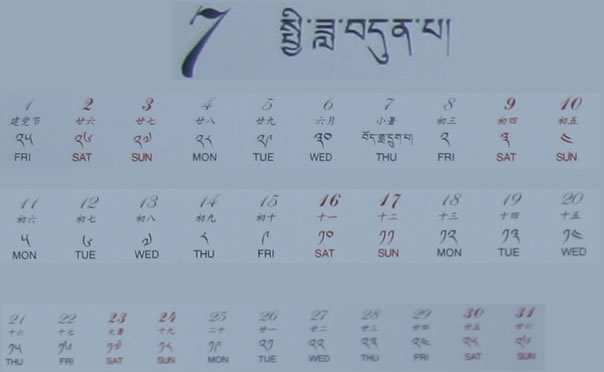 7 སྤྱི་ཟླ་བདུན་པ།
1 2 3 4 5 6 7 8 9 10
建党节 廿六 廿七 廿八 廿九 六月 小暑 初三 初四 初五
༢༥ ༢༦ ༢༧ ༢༨ ༢༩ ༣༠ བོད་ཟླ་དྲུག་པ། ༢ ༣ ༤
FRI SAT SUN MON TUE WED THU FRI SAT SUN
11 12 13 14 15 16 17 18 19 20
初六 初七 初八 初九 初十 十一 十二 十三 十四 十五
༥ ༦ ༧ ༨ ༩ ༡༠ ༡༡ ༡༢ ༡༣ ༡༤
MON TUE WED THU FRI SAT SUN MON TUE WED
21 22 23 24 25 26 27 28 29 30 31
十六 十七 大暑 十九 二十 廿一 廿二 廿三 廿四 廿五 廿六
༡༥ ༡༦ ༡༧ ༡༨ ༡༩ ༢༡ ༢༢ ༢༣ ༢༤ ༢༥ ༢༦
THU FRI SAT SUN MON TUE WED THU FRI SAT SUN